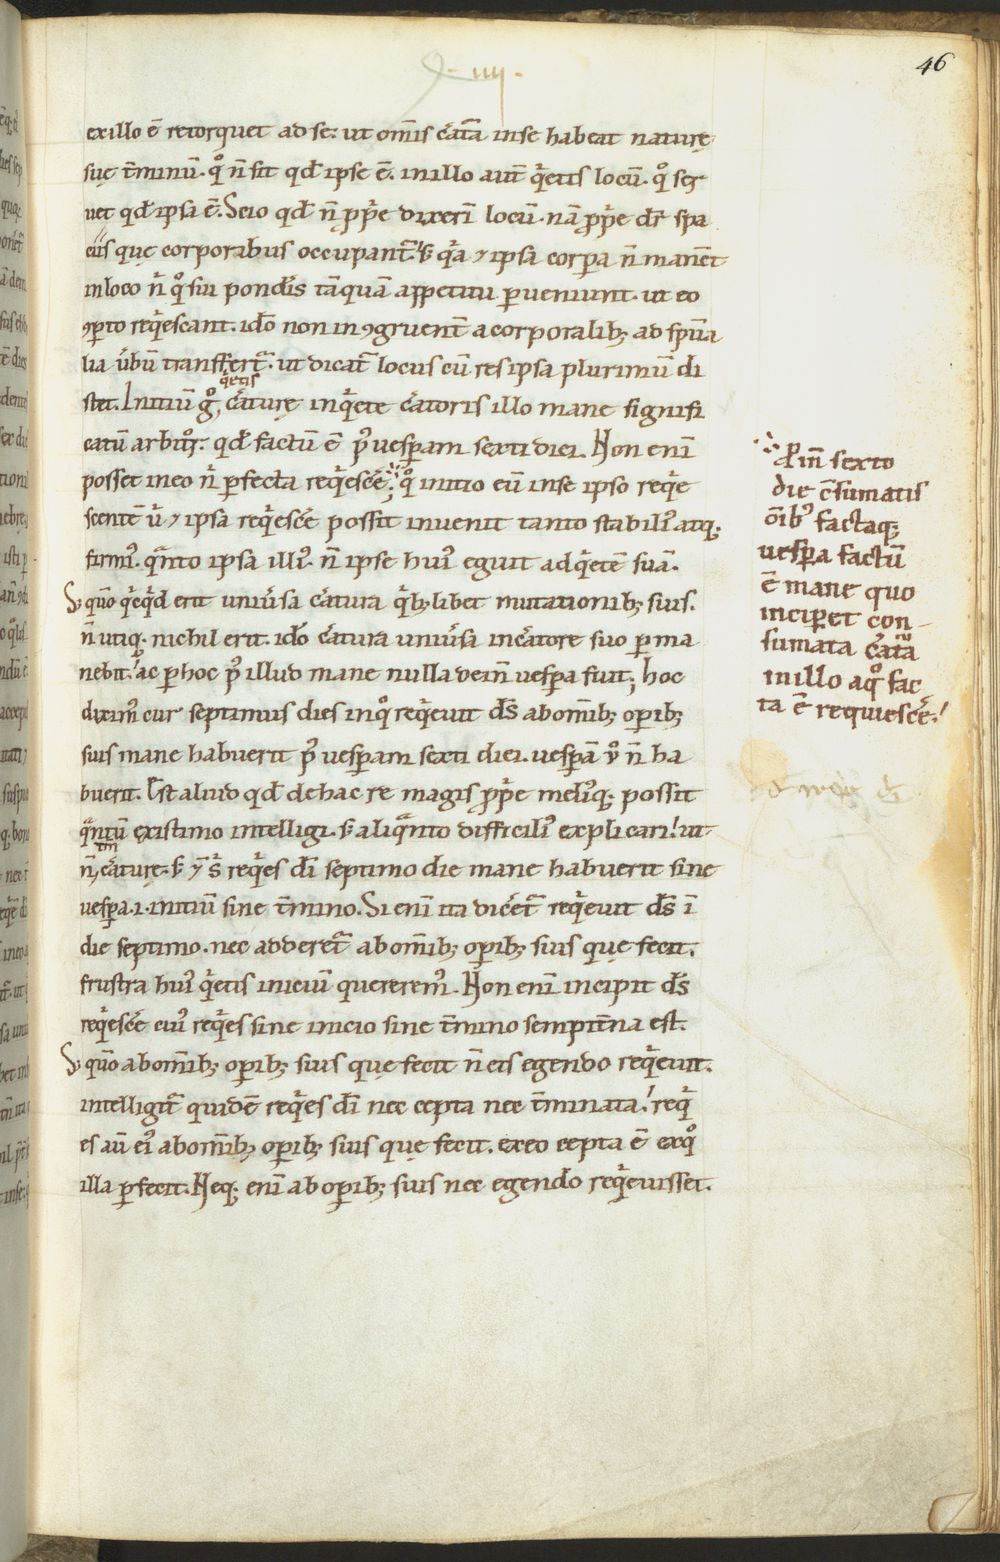 46
.iiii.
ex illo ē retorquet ad se; ut om̄is c̄ata in se habeat naturę
suę t̄minū. q̊ n̄ sit qđ ipse ē. in illo aut̄ q̓etis locū. q̊ ser
uet qđ ipsa ē. Scio qđ n̄ p̱p̓e dixerī locū. nā p̱p̓e dr̄ spa
ciis quę corporabus occupant᷑. s; q̓a ⁊ ipsa corp̱a n̄ manēt
in loco n̄ q̊ sui pond̄is tāquā appetitu p̱ueniunt. ut eo
ꝯp̱to req̓escant. ido᷑ non inꝯgruent᷑ a corporalib; ad sp̄ua
lia u᷑bū transfert᷑. ut dicat᷑ locus cū res ipsa plurimū di
q̓etis
stet. Initiū g̊ c᷑aturę in q̓ete c᷑atoris illo mane signifi
catū arbit᷑r. qđ factū ē p᷒ uesp̱am sexti diei. Non enī
posset in eo n̄ p̱fecta req̓esc᷑e; q̊ initio eū in se ipso req̓e
scentē u᷑ ⁊ ipsa req̓esc᷑e possit inuenit tanto stabili᷒ atq;
firmi᷒. q̄nto ipsa illi᷒. n̄ ipse hui᷒ eguit ad q̓etē suā.
S; quo᷑ q̓cq̓d erit uniu᷑sa c᷑atura q̓b; libet mutationib; suis.
n̄ utiq; nichil erit. ido᷑ c᷑atura uniu᷑sa in c᷑atore suo p̱ma
nebit. ac p̱ hoc p᷒ illud mane nulla dein̄ uesp̱a fuit; hoc
dixim᷒ cur septimus dies in q̊ req̓euit d̄s ab om̄ib; op̱ib;
suis mane habuerit p᷒ uesp̱am sexti diei. uesp̱ā ů n̄ ha
buerit. Est aliud qđ de hac re magis p̱p̓e meli᷒q; possit
q̄ntū existimo intelligi. s; aliq̄nto difficili᷒ explicari! ut
tm̄
n̄ c᷑aturę. s; ⁊ s᷑ req̓es dī septimo die mane habuerit sine
uesp̱a .i. initiū sine t̄mino. Si enī ita dic᷑et᷑ req̓euit d̄s ī
die septimo. nec adderet᷑ ab om̄ib; op̱ib; suis quę fecit.
frustra hui᷒ q̓etis iniciū quererem᷒. Non enī incipit d̄s
req̓esc᷑e cui᷒ req̓es sine inicio sine t̄mino sempit̄na est.
S; quo᷑ ab om̄ib; op̱ib; suis quę fecit n̄ eis egendo req̓euit.
intelligit᷑ quidē req̓es dī nec cepta nec t̄minata! req̓
es aū ei᷒ ab om̄ib; op̱ib; suis quę fecit. ex eo cepta ē ex q̊
illa p̱fecit. Neq; enī ab op̱ib; suis nec egendo req̓euisset.
P̱ in̄ sexto
die c̄sumatis
om̄ib᷒ factaq;
uesp̱a factū
ē mane quo
incip̱et con-
sumata c᷑atūa
in illo a q̊ fac
ta ē requiesc᷑e!